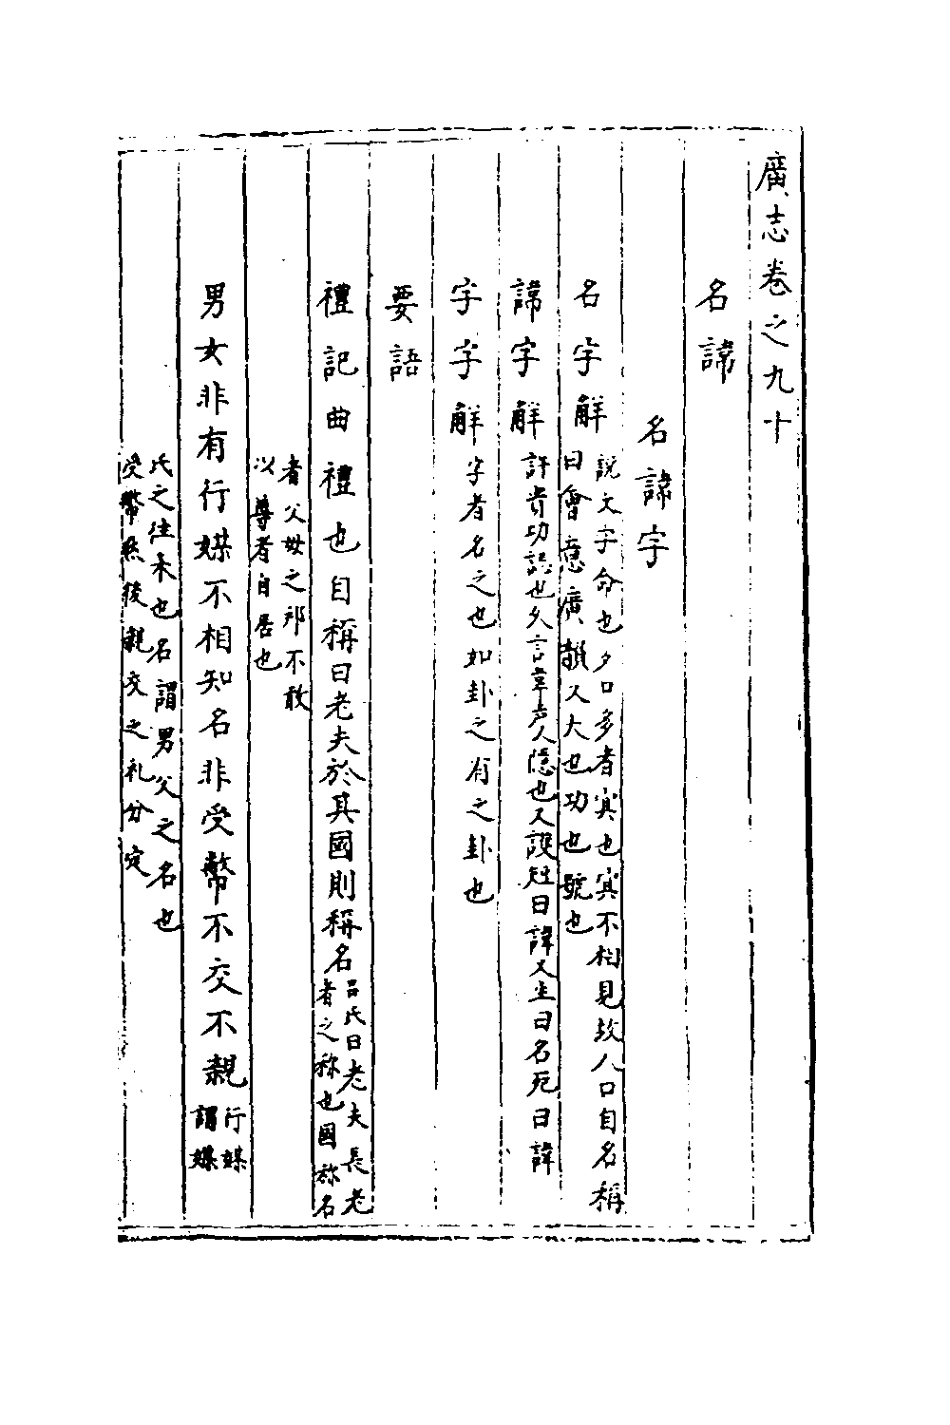 廣志卷之九十
名諱
名諱字
名字解
說文字命也夕口多者冥也冥不相見故人口自名稱
曰會意廣韻又大也功也號也
諱字解
許貴功誋也久言韋声人隱也又諱
曰諱又生曰名死曰諱
字字解
字者名之也如卦之有之卦也
要語
禮記曲禮也自稱曰老夫於其國則稱名
呂氏曰老夫長老
者之称也國称名
者父母之邦不敢
以尊者自居也
男女非有行媒不相知名非受幣不交不親
行媒
謂媒
氏之往来也名謂男女之名也
受幣然後親交之礼分定